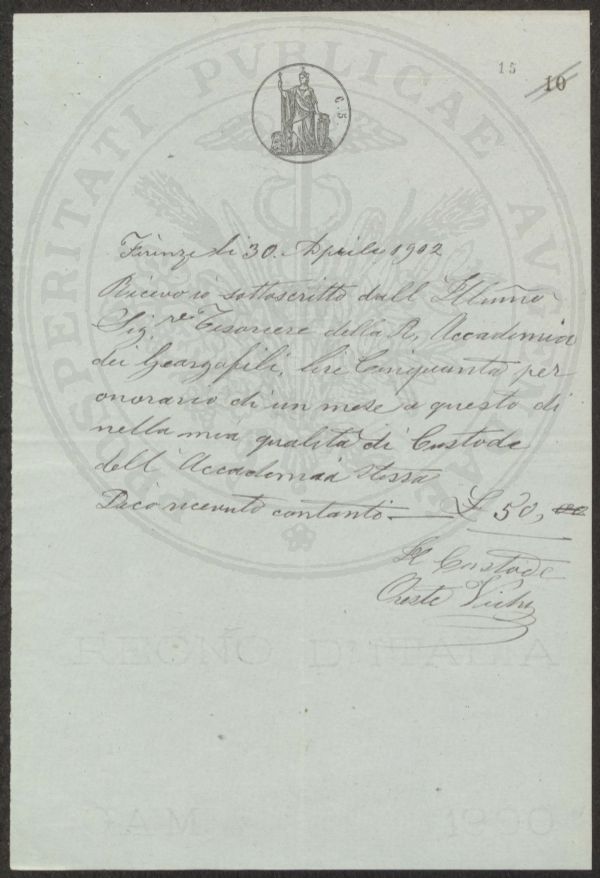 15
10
C. 5.
PROSPERITATI PVBLICAE AVGENDAE
Firenze li 30. Aprile 1902
Ricevo io sottoscritto dall Illumo
Sigre Tesoriere della R. Accademia
dei Geargofili, lire Cinquanta per
onorario di un mese a questo di
nella mia qualità di Custode
dell Accademia stessa
Dico ricevuto contanti — £ 50, 00
Il Custode
Oreste
REGNO D'ITALIA
1900